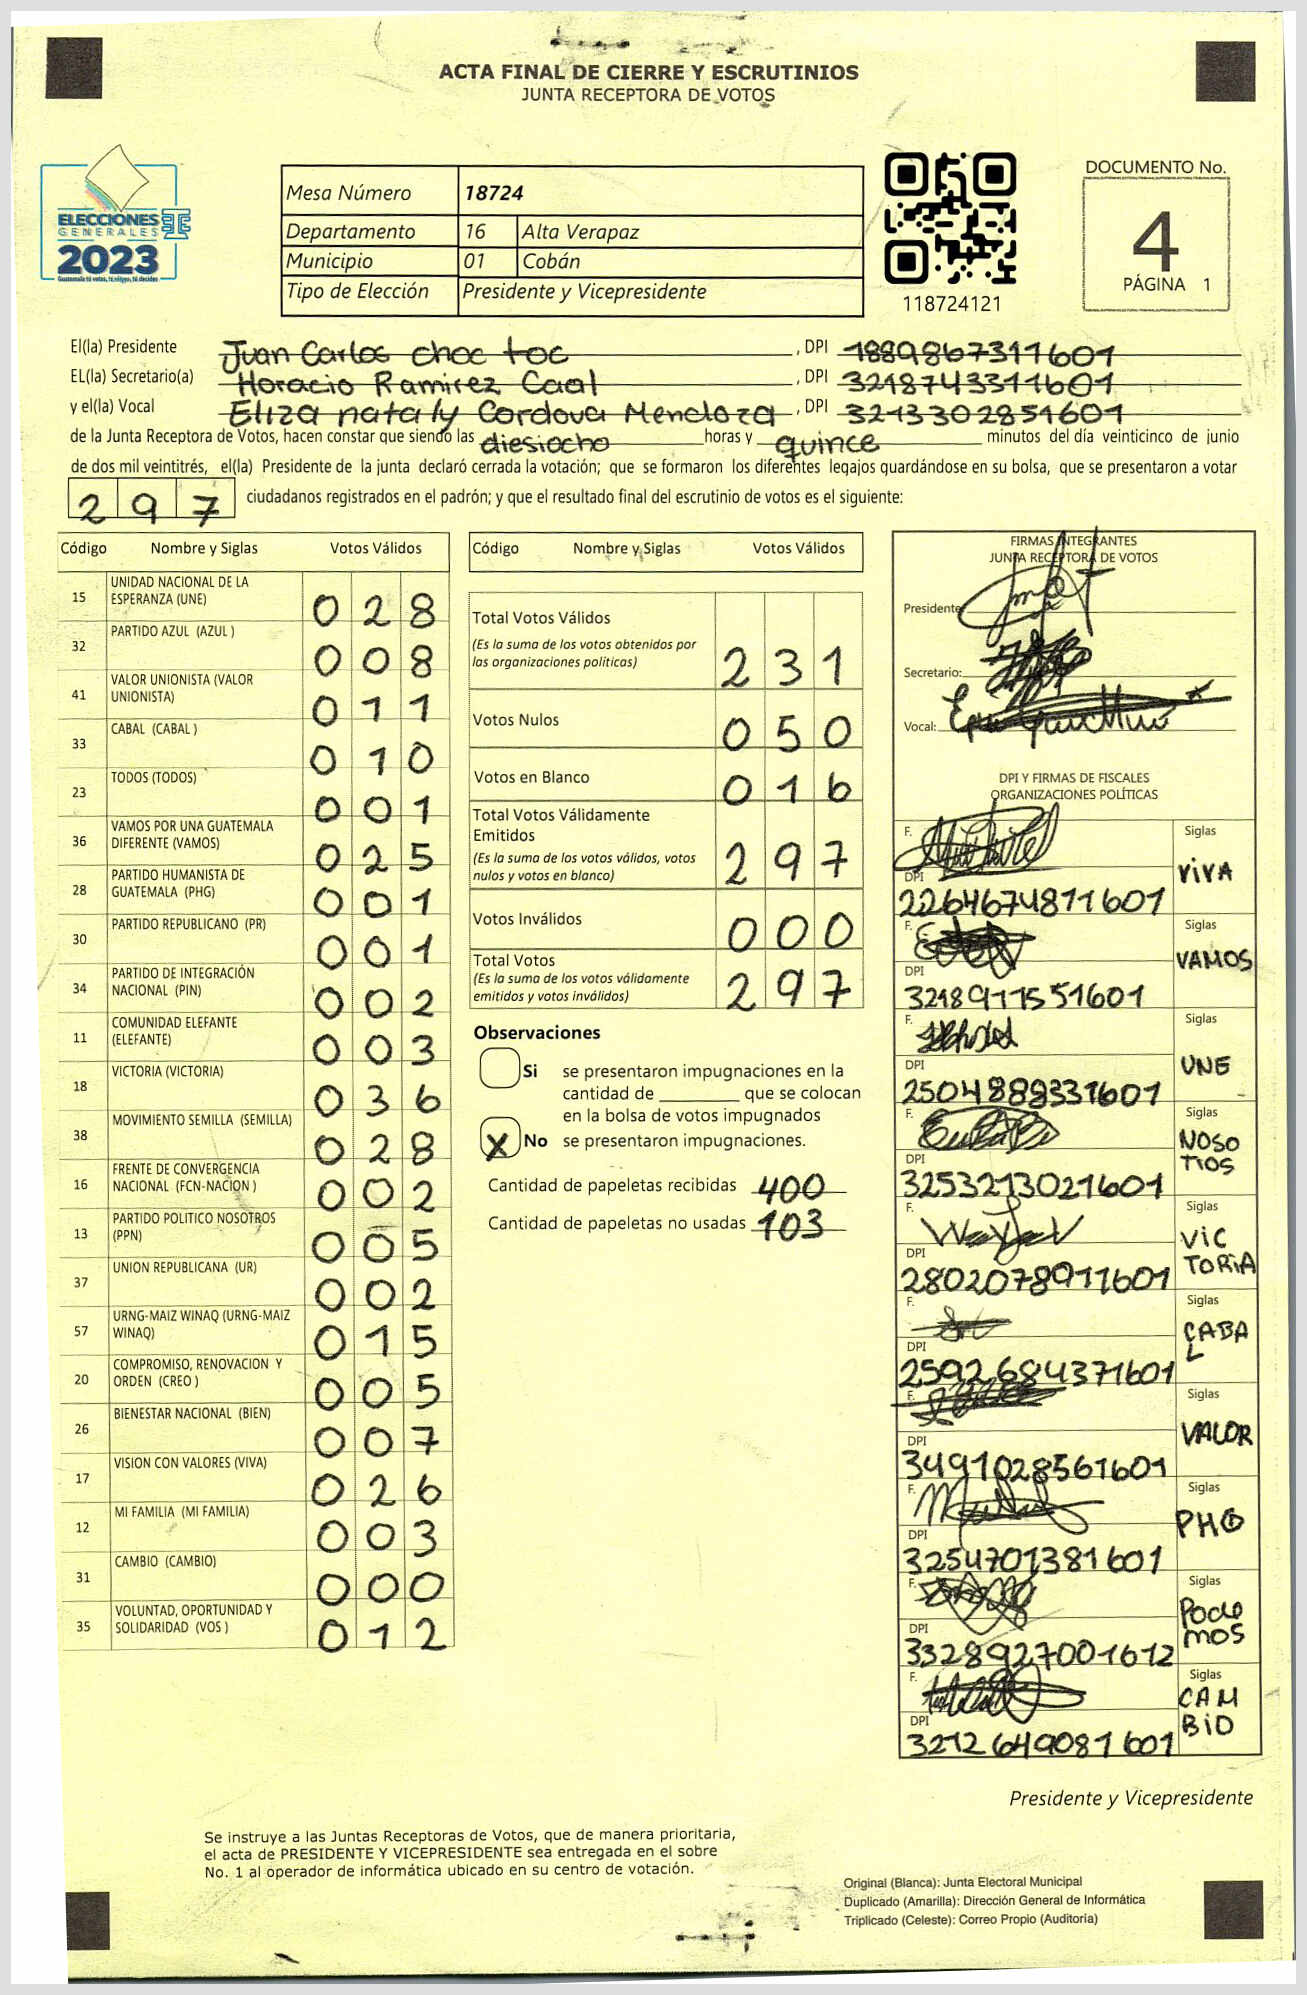 ACTA FINAL DE CIERRE Y ESCRUTINIOS
JUNTA RECEPTORA DE VOTOS
ELECCIONES
GENERALES
2023
Guatemala tú votas, tú eliges, tú decides
Mesa Número 18724
Departamento 16 Alta Verapaz
Municipio 01 Cobán
Tipo de Elección Presidente y Vicepresidente
118724121
DOCUMENTO No.
4
PÁGINA 1
El(la) Presidente Juan Carlos choc toc, DPI 1889867311601
EL(la) Secretario(a) Horacio Ramirez Caal, DPI 3218743311601
y el(la) Vocal Eliza nataly Cordova Mendoza, DPI 3213302851601
de la Junta Receptora de Votos, hacen constar que siendo las diesiocho horas y quince minutos del día veinticinco de junio
de dos mil veintitrés, el(la) Presidente de la junta declaró cerrada la votación; que se formaron los diferentes legajos guardándose en su bolsa, que se presentaron a votar
297 ciudadanos registrados en el padrón; y que el resultado final del escrutinio de votos es el siguiente:
Código Nombre y Siglas Votos Válidos
15 UNIDAD NACIONAL DE LA ESPERANZA (UNE) 028
32 PARTIDO AZUL (AZUL ) 008
41 VALOR UNIONISTA (VALOR UNIONISTA) 011
33 CABAL (CABAL ) 010
23 TODOS (TODOS) 001
36 VAMOS POR UNA GUATEMALA DIFERENTE (VAMOS) 025
28 PARTIDO HUMANISTA DE GUATEMALA (PHG) 001
30 PARTIDO REPUBLICANO (PR) 001
34 PARTIDO DE INTEGRACIÓN NACIONAL (PIN) 002
11 COMUNIDAD ELEFANTE (ELEFANTE) 003
18 VICTORIA (VICTORIA) 036
38 MOVIMIENTO SEMILLA (SEMILLA) 028
16 FRENTE DE CONVERGENCIA NACIONAL (FCN-NACION ) 002
13 PARTIDO POLITICO NOSOTROS (PPN) 005
37 UNION REPUBLICANA (UR) 002
57 URNG-MAIZ WINAQ (URNG-MAIZ WINAQ) 015
20 COMPROMISO, RENOVACION Y ORDEN (CREO ) 005
26 BIENESTAR NACIONAL (BIEN) 007
17 VISION CON VALORES (VIVA) 026
12 MI FAMILIA (MI FAMILIA) 003
31 CAMBIO (CAMBIO) 000
35 VOLUNTAD, OPORTUNIDAD Y SOLIDARIDAD (VOS ) 012
Código Nombre y Siglas Votos Válidos
Total Votos Válidos
(Es la suma de los votos obtenidos por
las organizaciones políticas) 231
Votos Nulos 050
Votos en Blanco 016
Total Votos Válidamente
Emitidos
(Es la suma de los votos válidos, votos
nulos y votos en blanco) 297
Votos Inválidos 000
Total Votos
(Es la suma de los votos válidamente
emitidos y votos inválidos) 297
Observaciones
Si se presentaron impugnaciones en la
cantidad de ________ que se colocan
en la bolsa de votos impugnados
X No se presentaron impugnaciones.
Cantidad de papeletas recibidas 400
Cantidad de papeletas no usadas 103
FIRMAS INTEGRANTES
JUNTA RECEPTORA DE VOTOS
Presidente:
Secretario:
Vocal:
DPI Y FIRMAS DE FISCALES
ORGANIZACIONES POLÍTICAS
F. Siglas
DPI VIVA
2264674811601
F. Siglas
DPI VAMOS
3218911551601
F. Siglas
DPI UNE
2504889331601
F. Siglas
DPI NOSO
TIOS
3253213021601
F. Siglas
DPI VIC
TORIA
2802078911601
F. Siglas
DPI CABA
L
2592684371601
F. Siglas
DPI VALOR
3491028561601
F. Siglas
DPI PHG
3254701381601
F. Siglas
DPI Pode
mos
3328927001612
F. Siglas
DPI CAM
BIO
3212649081601
Presidente y Vicepresidente
Se instruye a las Juntas Receptoras de Votos, que de manera prioritaria,
el acta de PRESIDENTE Y VICEPRESIDENTE sea entregada en el sobre
No. 1 al operador de informática ubicado en su centro de votación.
Original (Blanca): Junta Electoral Municipal
Duplicado (Amarilla): Dirección General de Informática
Triplicado (Celeste): Correo Propio (Auditoria)